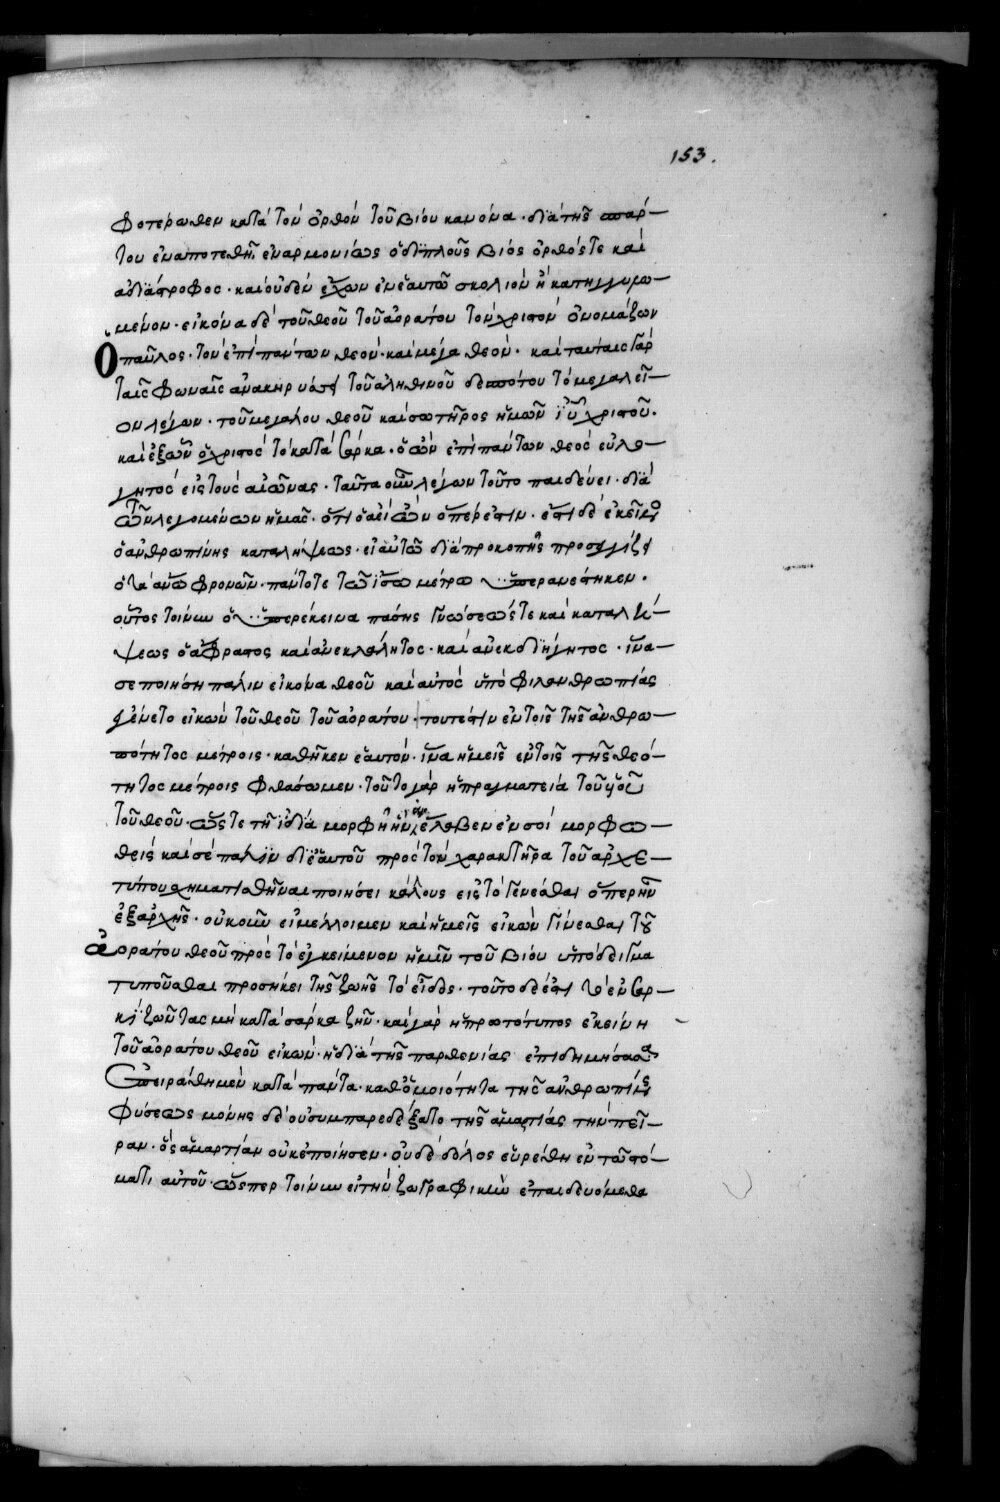 153.
φοτέρωθεν κατὰ τὸν ὀρθὸν τοῦ βίου κανόνα· διὰ τῆς σπάρ-
του ἐναποτεθῇ, ἐναρμονίως ὁ διπλοῦς βίος ὀρθός τε καὶ
ἀδιάστροφος· καὶ οὐδὲν ἔχων ἐν ἑαυτῶ σκολιὸν ἢ κατηγγυρω-
μένον· εἰκόνα δὲ τοῦ θεοῦ τοῦ ἀοράτου τὸν χριστὸν ὀνομάζων
Ὁ παῦλος· τὸν ἐπὶ πάντων θεόν· καὶ μέγα θεόν· καὶ ταύταις γὰρ
ταῖς φωναῖς ἀνακηρύσσει τοῦ ἀληθινοῦ δεσπότου τὸ μεγαλεῖ-
ον λέγων· τοῦ μεγάλου θεοῦ καὶ σωτῆρος ἡμῶν ἰῦ χριστοῦ·
καὶ ἐξ ὧν ὁ χριστὸς τὸ κατὰ σάρκα· ὁ ὢν ἐπὶ πάντων θεὸς εὐλο-
γητὸς εἰς τοὺς αἰῶνας· ταῦτα οὖν λέγων τοῦτο παιδεύει· διὰ
τῶν λεγομένων ἡμᾶς· ὅτι ὁ ἀεὶ ὢν ὅπερ ἐστιν· ἔστι δὲ ἐκεῖνο
ὁ ἀνθρωπίνης καταλήψεως· εἰ αὐτῶ διὰ προκοπῆς προσεγγίζει
ὁ τὰ ἄνω φρονῶν· πάντοτε τῶ ἴσω μέτρω ὑπερανέστηκεν·
οὗτος τοίνυν ὁ ὑπερέκεινα πάσης γνώσεώς τε καὶ καταλή-
ψεως ὁ ἄφραστος καὶ ἀνεκλάλητος· καὶ ἀνεκδιήγητος· ἵνα-
σε ποιήση πάλιν εἰκόνα θεοῦ καὶ αὐτὸς ὑπὸ φιλανθρωπίας
ἐγένετο εἰκὼν τοῦ θεοῦ τοῦ ἀοράτου· τουτέστιν ἐν τοῖς τῆς ἀνθρω-
πότητος μέτροις· καθῆκεν ἑαυτόν· ἵνα ἡμεῖς ἐν τοῖς τῆς θεό-
τητος μέτροις φθάσωμεν· τοῦτο γὰρ ἡ πραγματεία τοῦ υἱοῦ
τοῦ θεοῦ· ὥς τε τῆ ἰδία μορφῆ ἣν ἔλαβεν ἐν σοὶ μορφω-
θεὶς καὶ σὲ πάλιν δι' ἑαυτοῦ πρὸς τὸν χαρακτῆρα τοῦ ἀρχε-
τύπου σχηματισθῆναι ποιήσει κάλλους εἰς τὸ γενέσθαι ὅπερ ἦν
ἐξ ἀρχῆς· οὐκοῦν εἰ μέλλοιμεν καὶ ἡμεῖς εἰκὼν γίνεσθαι τοῦ
ἀοράτου θεοῦ πρὸς τὸ ἐγκείμενον ἡμῖν τοῦ βίου ὑπόδειγμα
τυποῦσθαι προσήκει τῆς ζωῆς τὸ εἶδος· τοῦτο δέ ἐστι τὸ ἐν σαρ-
κὶ ζῶντας μὴ κατὰ σάρκα ζῆν· καὶ γὰρ ἡ πρωτότυπος ἐκείνη
τοῦ ἀοράτου θεοῦ εἰκών· ἡ διὰ τῆς παρθενίας ἐπιδημήσασα
ἐπειράσθη μὲν κατὰ πάντα· καθ' ὁμοιότητα τῆς ἀνθρωπίνης
φύσεως μόνης δὲ οὐ συμπαρεδέξατο τῆς ἁμαρτίας τὴν πεῖ-
ραν· ὃς ἁμαρτίαν οὐκ ἐποίησεν· οὐδὲ δόλος εὑρέθη ἐν τῶ στό-
ματι αὐτοῦ· ὥσπερ τοίνυν εἰ τὴν ζωγραφικὴν ἐπαιδευόμεθα